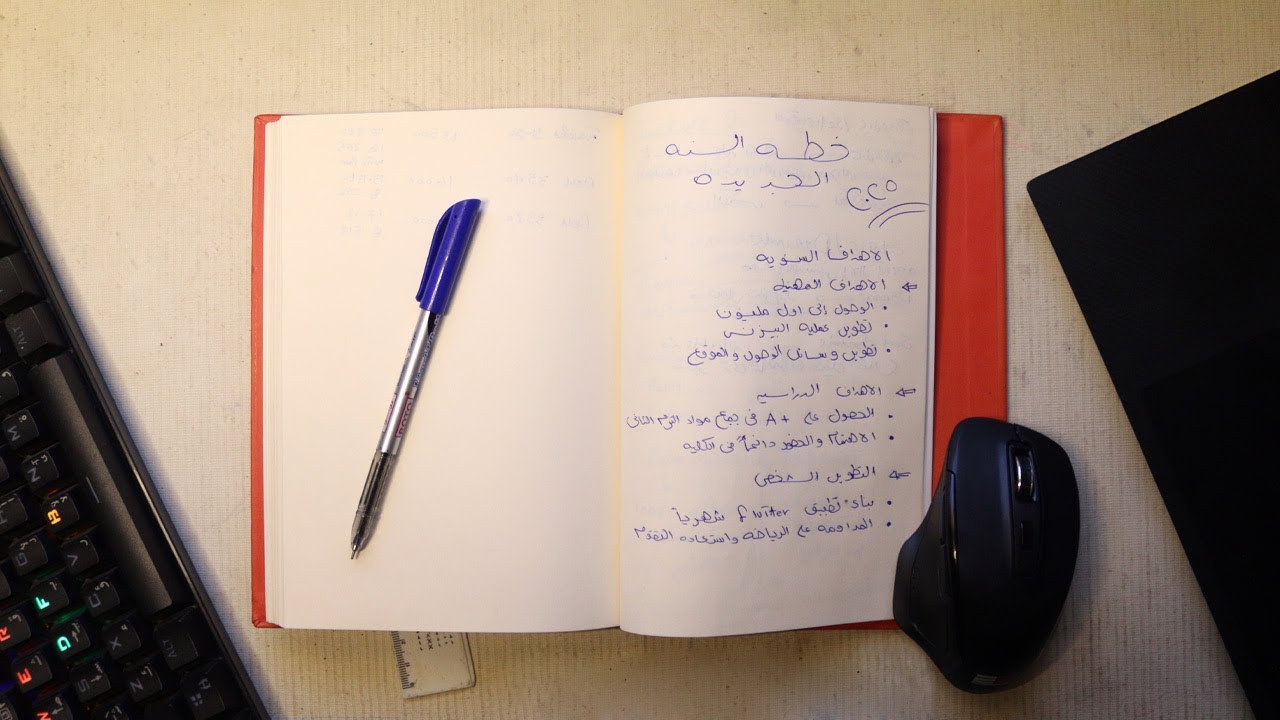 خطه السنه
الجديده ٢٠٢٥
الاهداف السنويه
الاهداف المهنيه
• الوصول إلى اول مليون
• تطوير عمليه البيزنس
• تطوير وسائل الوصول والموقع
الاهداف الدراسيه
• الحصول على A+ فى جميع مواد الترم الثانى
• الاهتمام والحضور دائماً فى الكليه
التطوير الشخصى
• بناء تطبيق flutter شهرياً
• المداومه على الرياضه واستعاده
ALT
M
N
B
V
C
X
Z
ALT
G
F
D
S
R
E